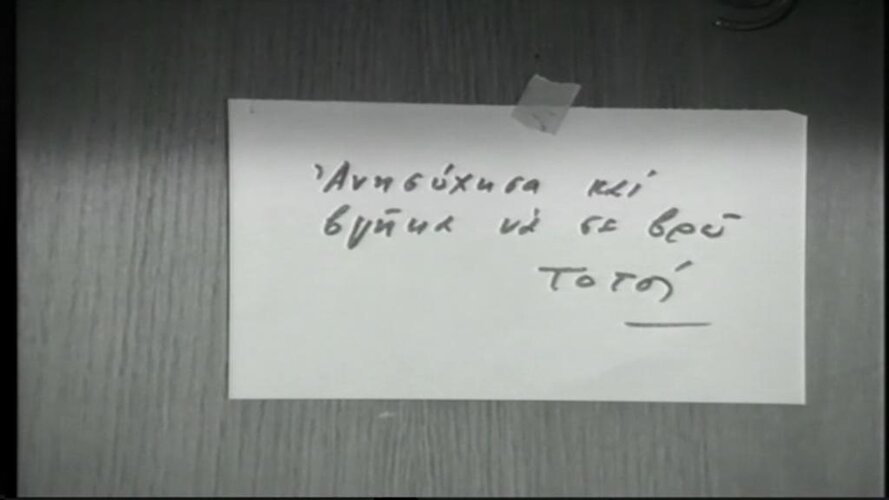 Ἀνησύχησα καί
βγῆκα νὰ σε βρῶ
Τοτσή